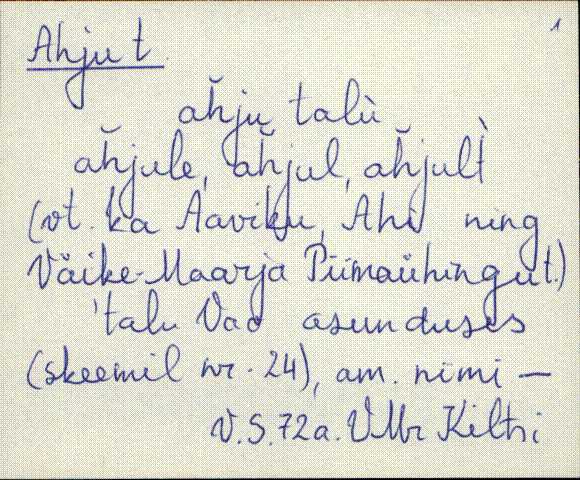 1
Ahju t
aȟju talù
aȟjule, aȟjul, aȟjult̀
(vt. ka Aaviku, Ahi ning
Väike-Maarja Piimaühingu t.)
'talu Vao asunduses
(skeemil nr. 24), am. nimi —
V.S. 72a. VMr Kiltsi